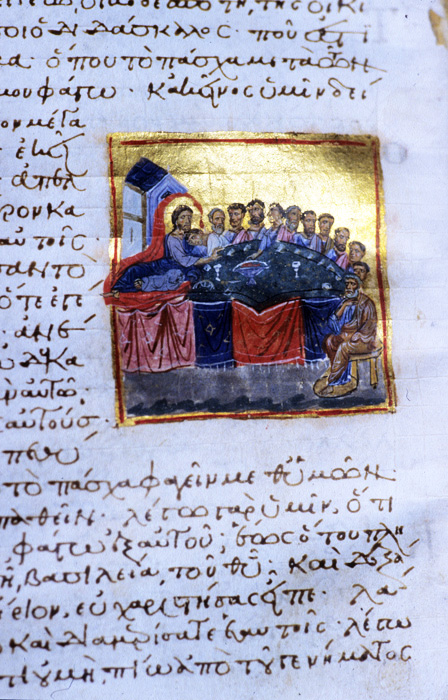 τῆς οἰκί
ὁ διδάσκαλος· ποῦ ἐστι
μα· ὅπου τὸ πάσχα μετὰ τῶν
μου φάγω· κἀκεῖνος ὑμῖν δεί
ον μέγα
ἐκεῖ
ἀπελ
ρον κα
αὐτοῖς·
σαν τὸ
ὅτε ἐγέ
ἀνέ
δώδεκα
αὐτῷ·
αὐτούς·
πιθυ
τὸ πάσχα φαγεῖν μεθ' ὑμῶν·
παθεῖν· λέγω γὰρ ὑμῖν, ὅτι
φάγω ἐξ αὐτοῦ· ἕως ὅτου πλη
βασιλεία, τοῦ θυ· καὶ δεξά
ριον, εὐχαριστήσας εἶπε· λά
καὶ διαμερίσατε ἑαυτοῖς· λέγω
οὐ μὴ, πίω ἀπὸ τοῦ γενήματος